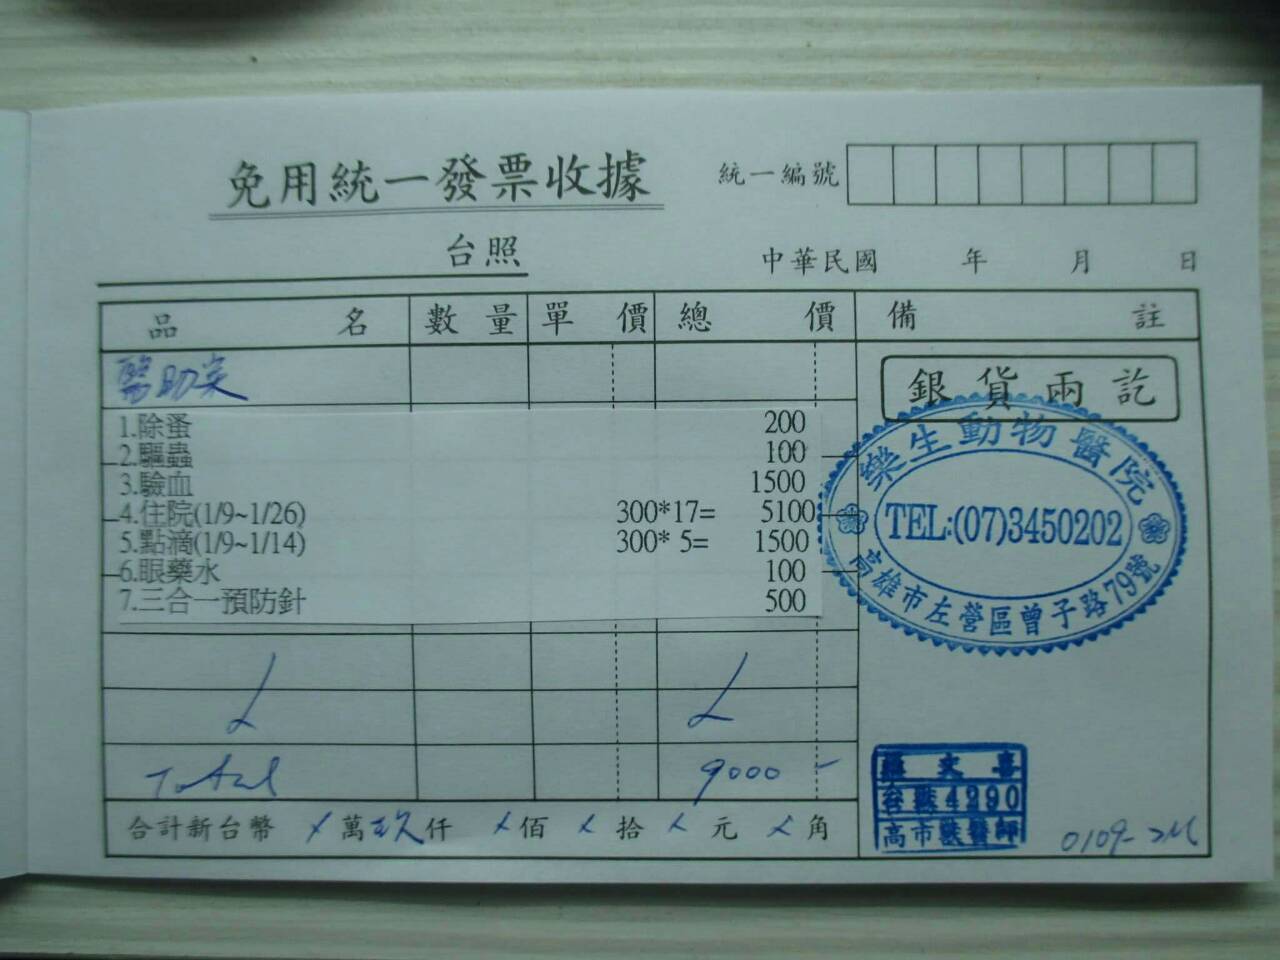 免用統一發票收據
統一編號
台照
中華民國 年 月 日
品名 數量 單價 總價 備註
銀貨兩訖
1.除蚤 200
2.驅蟲 100
3.驗血 1500
4.住院(1/9~1/26) 300*17= 5100
5.點滴(1/9~1/14) 300* 5= 1500
6.眼藥水 100
7.三合一預防針 500
樂生動物醫院
TEL:(07)3450202
高雄市左營區曾子路79號
Total 9000
合計新台幣 萬 仟 佰 拾 元 角
4290
高市獸醫師
0109-